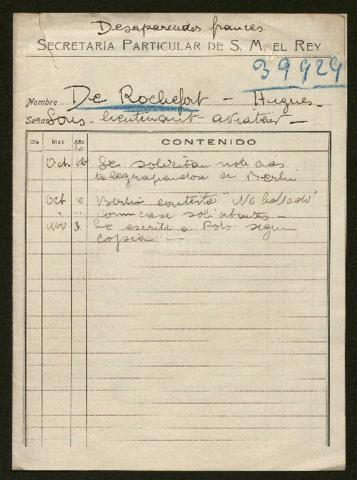 Desaparecidos frances
SECRETARÍA PARTICULAR DE S. M. EL REY
39929
Nombre De Rochefort - Hugues -
Señas Sous-lieutenant aviateur -
Día Mes Año CONTENIDO
Oct. Se solicitan noticias
telegrapiandos a Berlin
Oct Berlin contesta "No hallado"
" " Comunicase solicitantes -
Nov 3 Se escribe a Polo segun
copia -